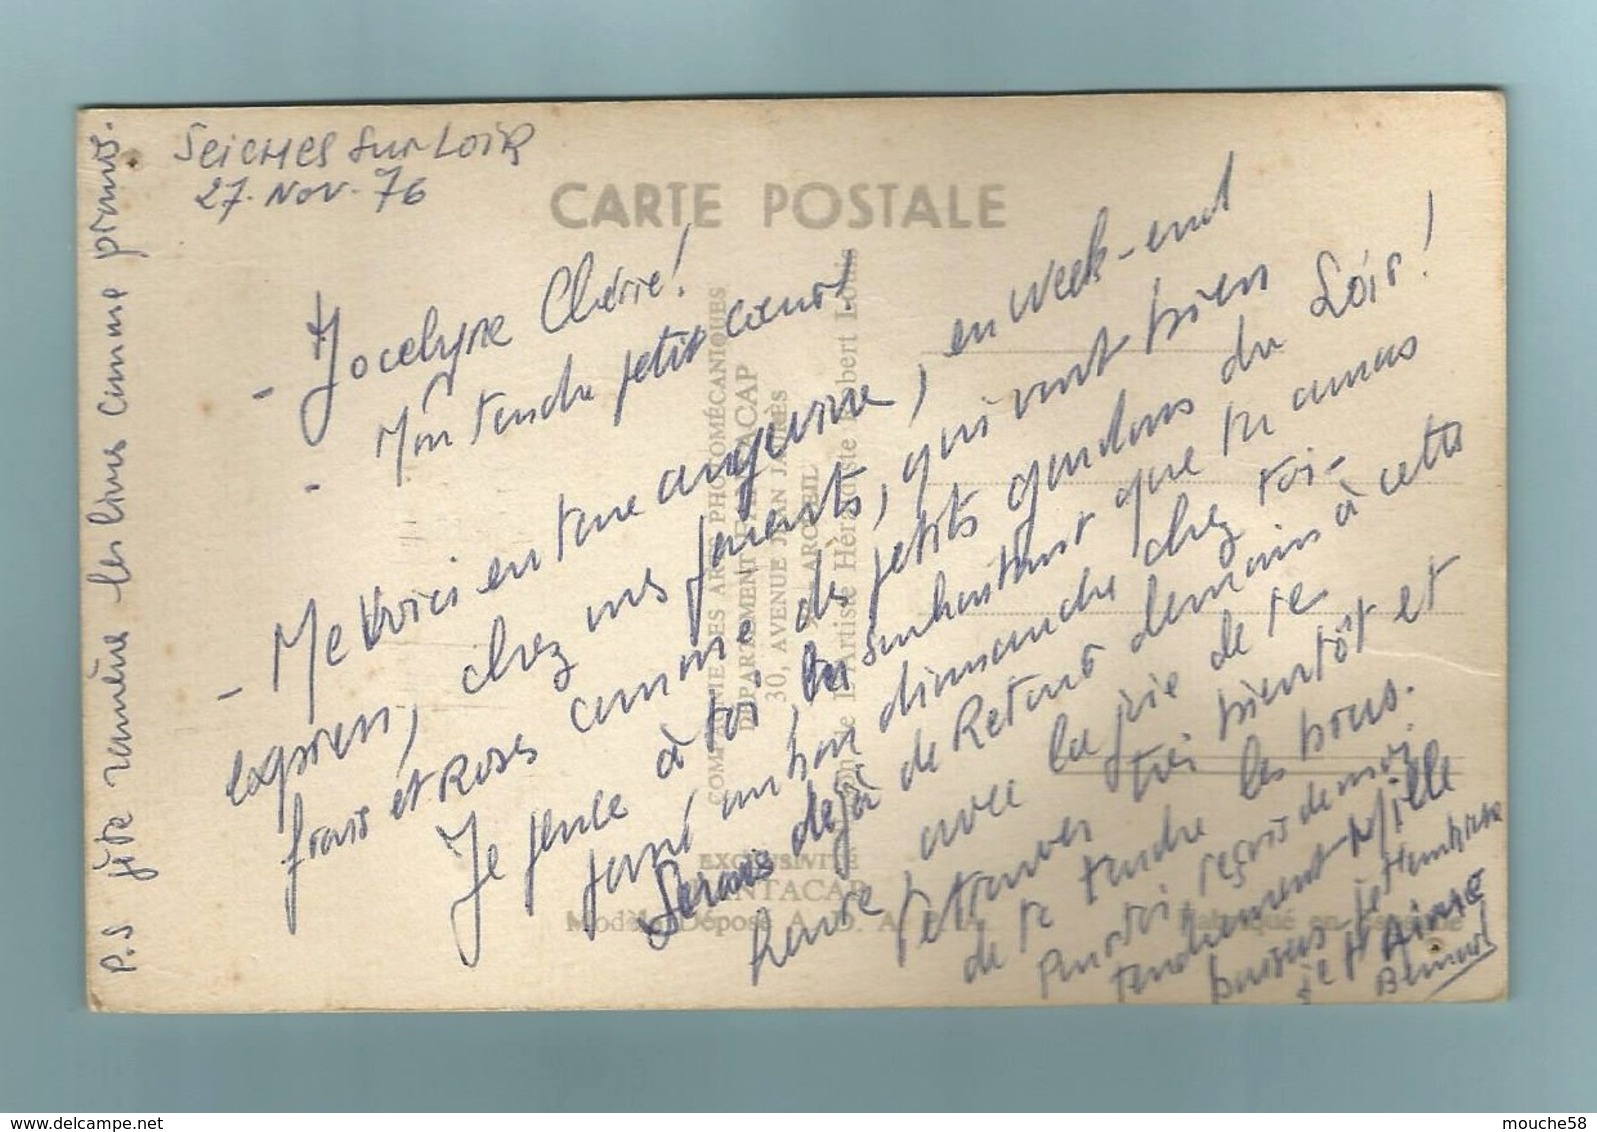 Seiches sur Loir
27. Nov. 76
CARTE POSTALE
- Jocelyne Chérie!
- Mon tendre petit cœur!
- Me voici en terre angevine, en week-end
express, chez mes parents, qui vont bien
frais et Roses comme de petits gardons du Loir!
Je pense à toi, en souhaitant que tu auras
passé un bon dimanche chez toi-
Serais déjà de Retour demain à cette
heure avec la joie de te
retrouver très bientôt et
de te tendre les bras.
Pour toi reçois de moi
tendrement Mille
baisers je t'embrasse
je t'Aime
Bernard
P.S je te ramène les livres comme promis.
COMPAGNIE DES ARTS PHOTOMÉCANIQUES
DÉPARTEMENT FANTACAP
30, AVENUE JEAN JAURÈS
ARCUEIL
de l'Artiste Héraldiste Robert Louis
EXCLUSIVITÉ
FANTACAP
Modèle Déposé
Fabriqué en
delcampe.net
mouche58